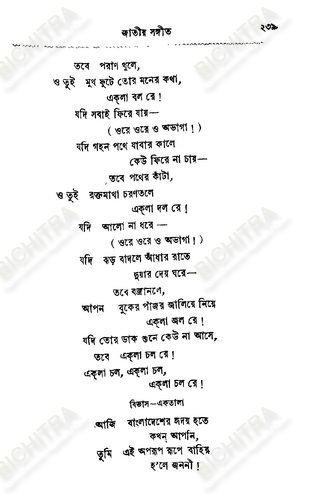 জাতীয় সঙ্গীত ২৩৯
তবে পরাণ খুলে,
ও তুই মুখ ফুটে তোর মনের কথা,
এক্‌লা বল রে !
যদি সবাই ফিরে যায়—
( ওরে ওরে ও অভাগা ! )
যদি গহন পথে যাবার কালে
কেউ ফিরে না চায়—
তবে পথের কাঁটা,
ও তুই রক্তমাখা চরণতলে
এক্‌লা দল রে !
যদি আলো না ধরে —
( ওরে ওরে ও অভাগা ! )
যদি ঝড় বাদলে আঁধার রাতে
দুয়ার দেয় ঘরে—
তবে বজ্রানলে,
আপন বুকের পাঁজর জালিয়ে নিয়ে
এক্‌লা জল রে !
যদি তোর ডাক শুনে কেউ না আসে,
তবে এক্‌লা চল রে !
এক্‌লা চল, এক্‌লা চল,
এক্‌লা চল রে !
বিভাস—একতালা
আজি বাংলাদেশের হৃদয় হতে
কখন্ আপনি,
তুমি এই অপরূপ রূপে বাহির
হ'লে জননী !
BICHITRA